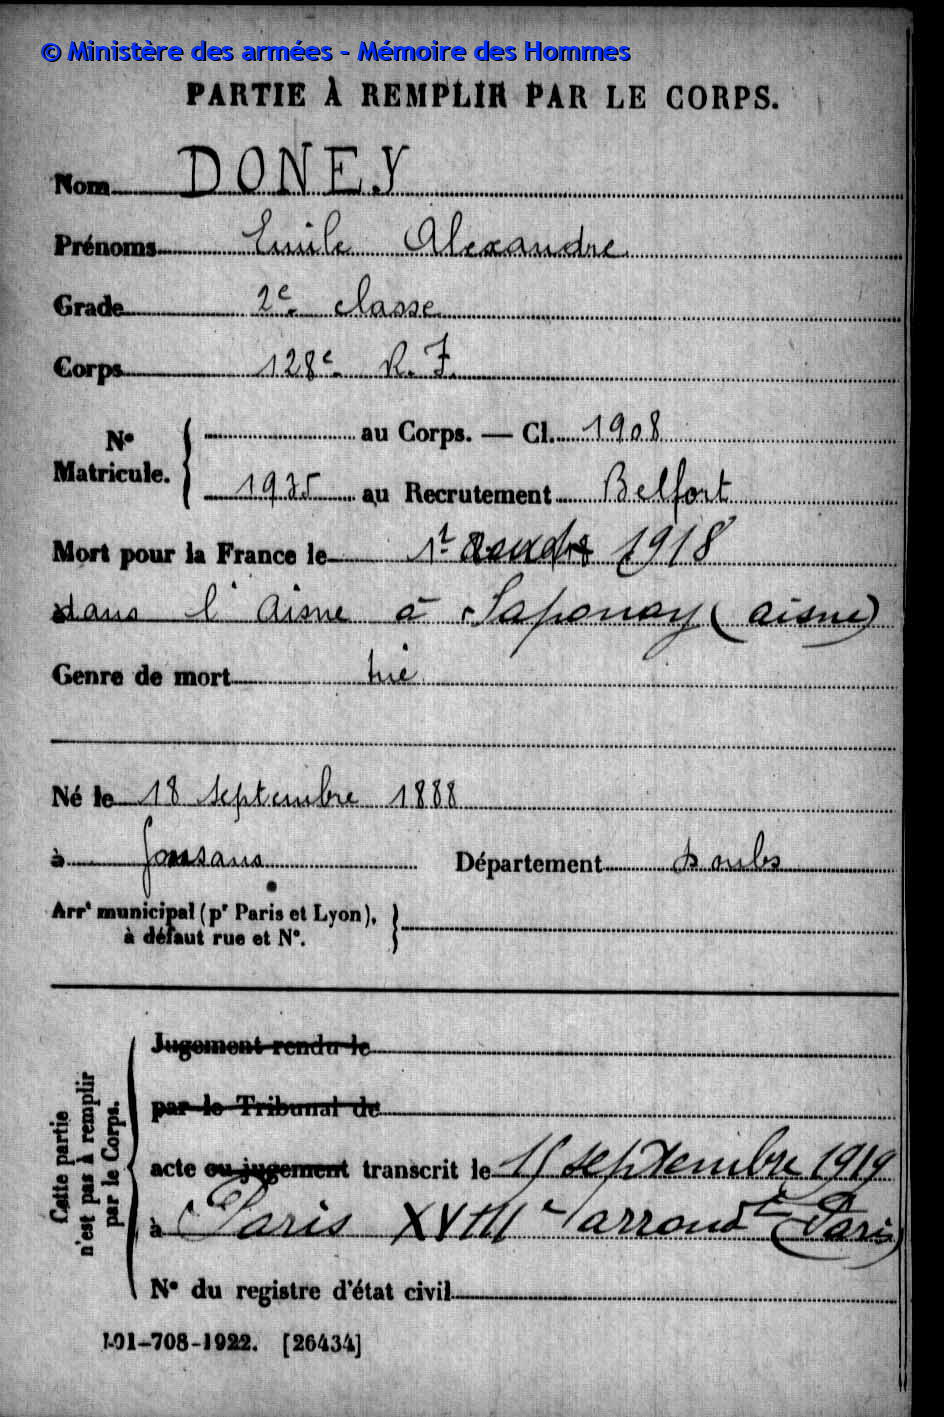 © Ministère des armées - Mémoire des Hommes
PARTIE À REMPLIR PAR LE CORPS.
Nom DONEY
Prénoms Emile Alexandre
Grade 2e classe
Corps 128e R.I.
N° Matricule. { au Corps. — Cl. 1908
1935 au Recrutement Belfort
Mort pour la France le 1r 1918
dans l'aisne à Saponay (aisne)
Genre de mort tué
Né le 18 septembre 1888
à Gonsans Département Doubs
Arrt municipal (pr Paris et Lyon),
à défaut rue et N°.
Cette partie
n'est pas à remplir
par le Corps.
Jugement rendu le
par le Tribunal de
acte ou jugement transcrit le 15 septembre 1919
à Paris XVIIIe arrondt (Paris)
N° du registre d'état civil
101-708-1922. [26434]